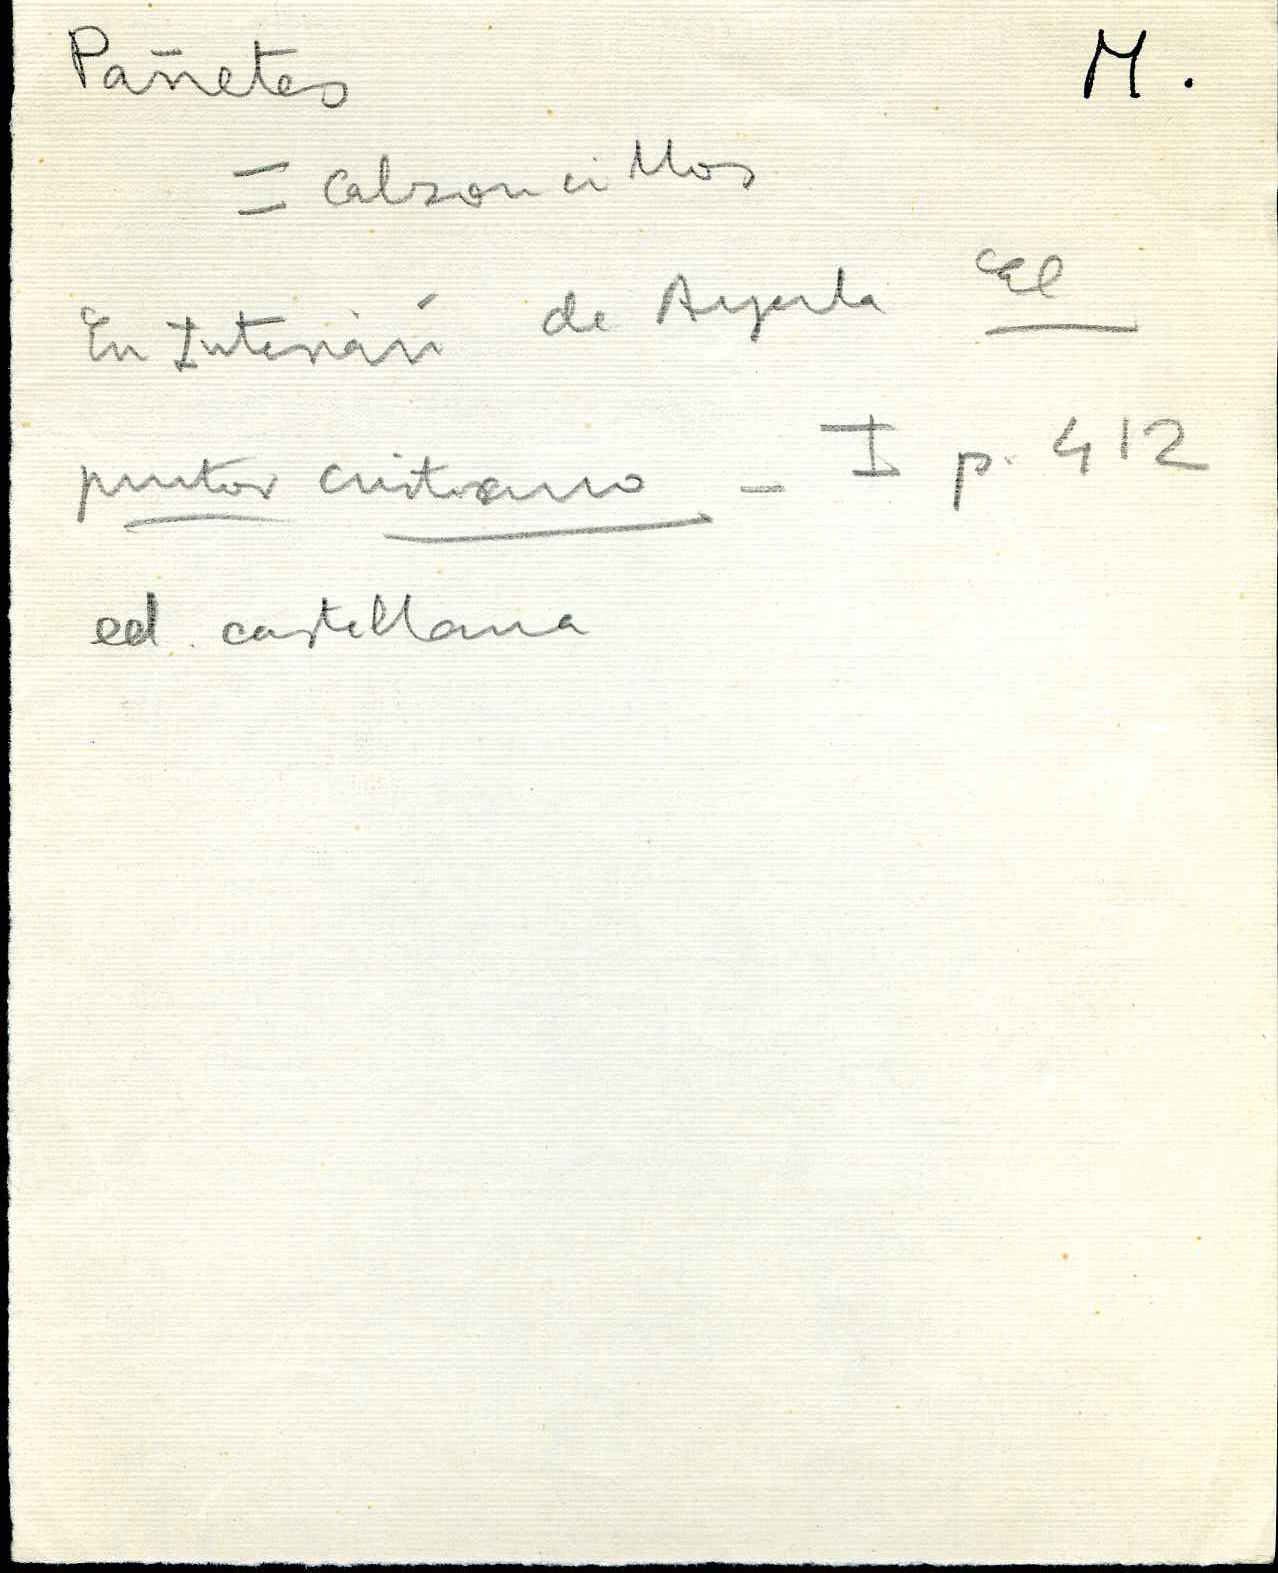 Pañetes M.
= calzoncillos
En Interián de Ayerla El
pintor cristiano - I p. 412
ed. castellana